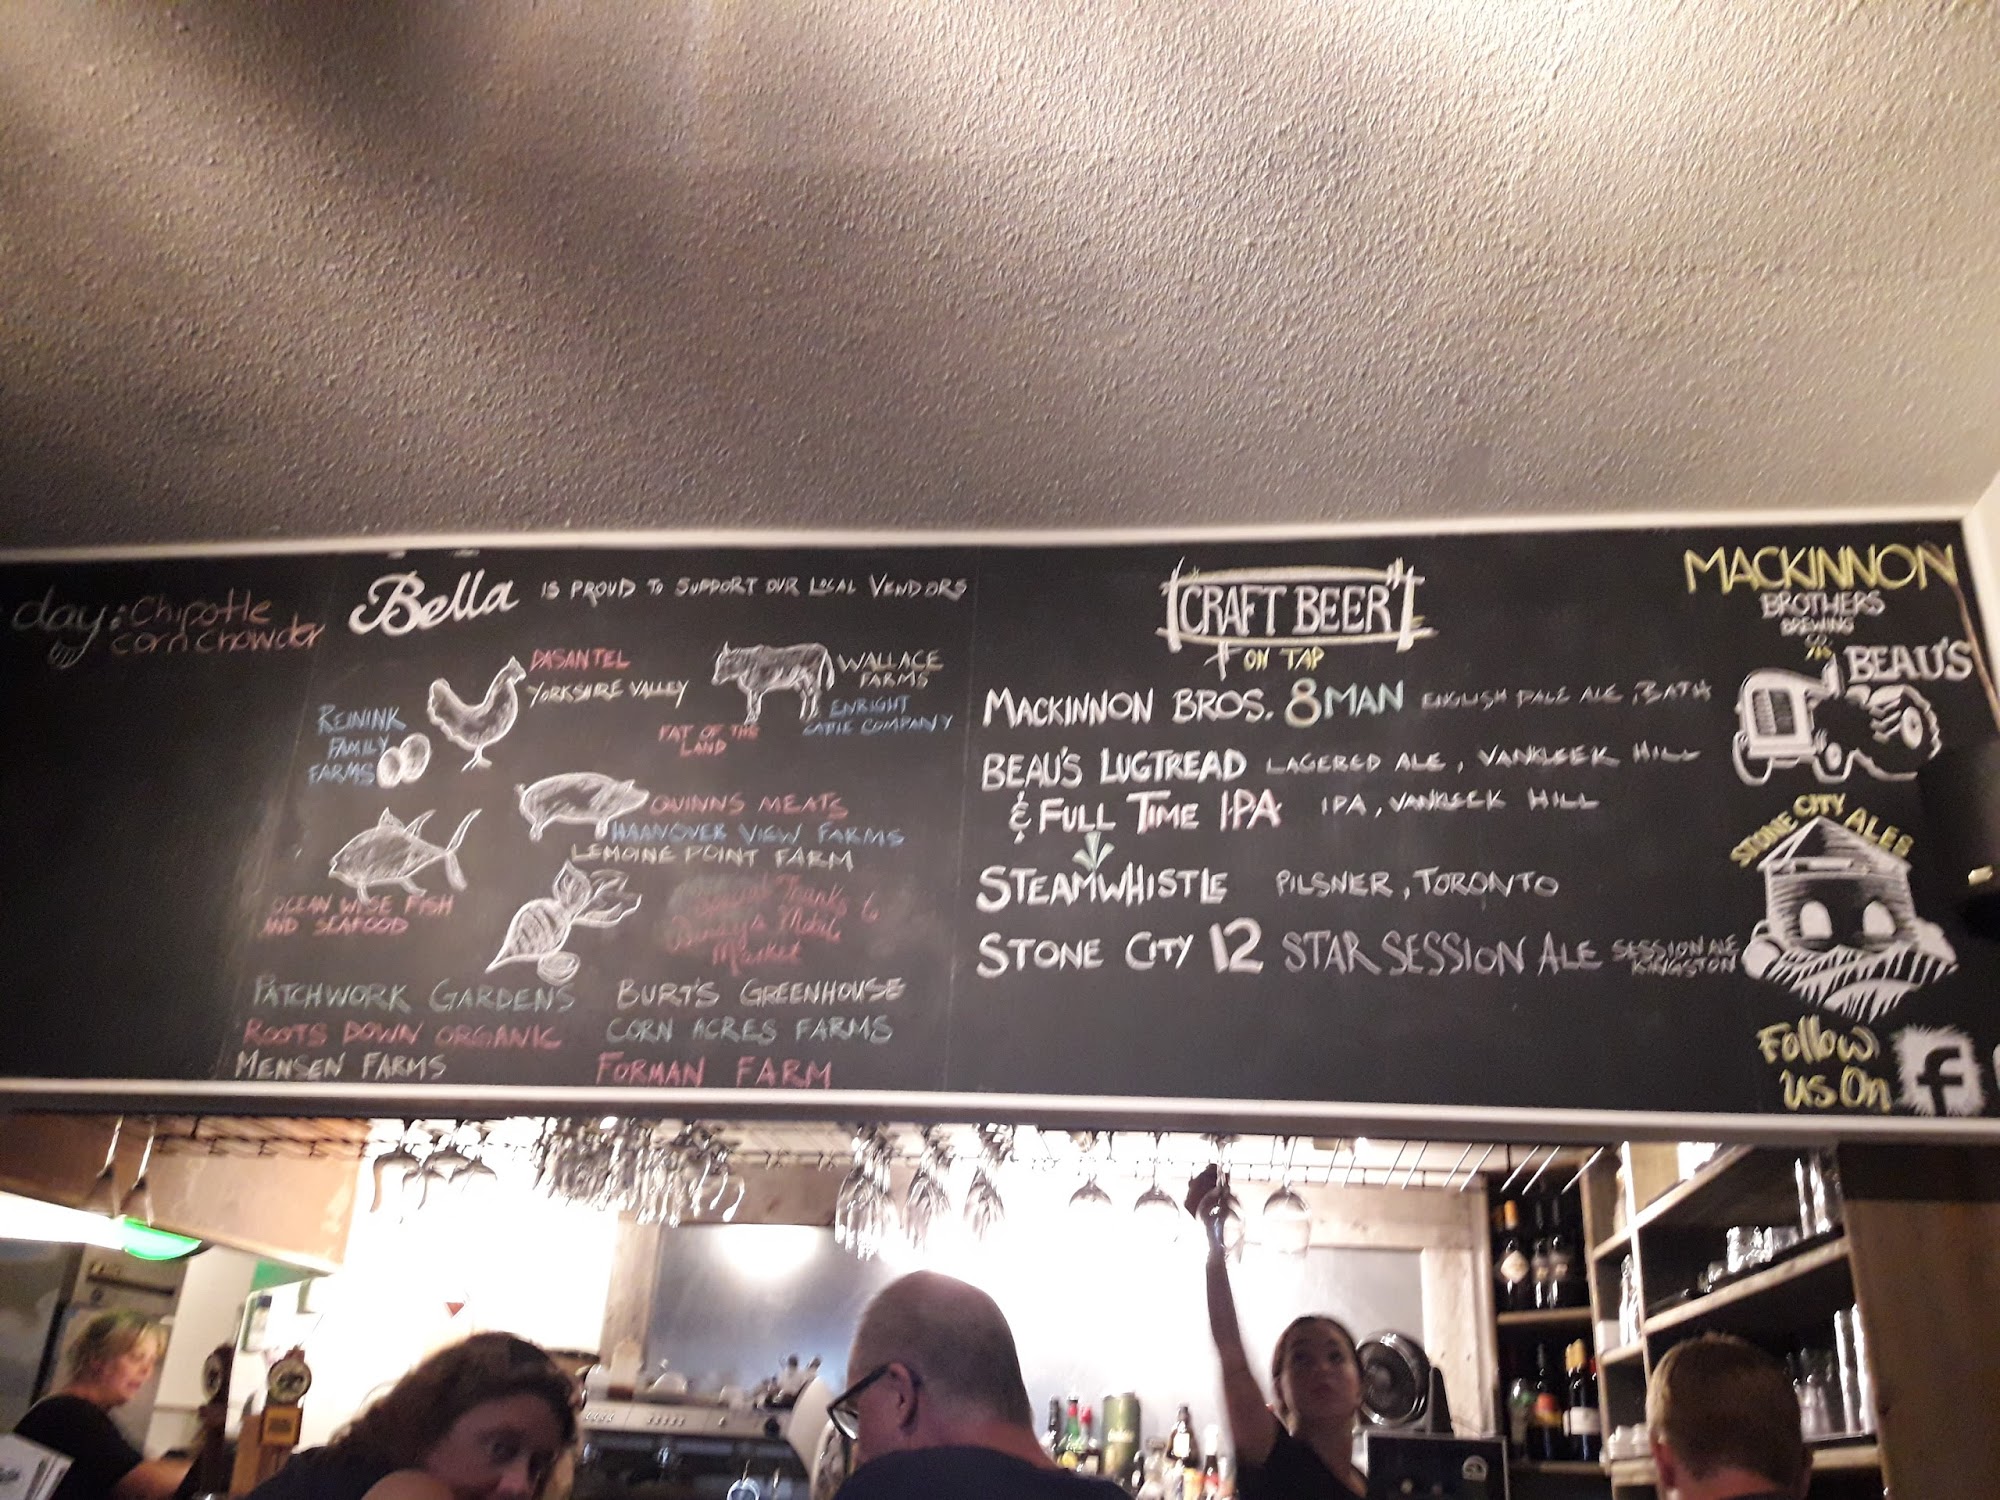 day: Chipotle
corn chowder
Bella IS PROUD TO SUPPORT OUR LOCAL VENDORS
DASANTEL
YORKSHIRE VALLEY
REININK
FAMILY
FARMS
WALLACE
FARMS
ENRIGHT
CATTLE COMPANY
FAT OF THE
LAND
QUINNS MEATS
HAANOVER VIEW FARMS
LEMOINE POINT FARM
OCEAN WISE FISH
AND SEAFOOD
Special Thanks to
Mobile
Market
PATCHWORK GARDENS
ROOTS DOWN ORGANIC
MENSEN FARMS
BURT'S GREENHOUSE
CORN ACRES FARMS
FORMAN FARM
CRAFT BEER
ON TAP
MACKINNON BROS. 8 MAN ENGLISH PALE ALE, BATH
BEAU'S LUGTREAD LAGERED ALE, VANKLEEK HILL
& FULL TIME IPA IPA, VANKLEEK HILL
STEAMWHISTLE PILSNER, TORONTO
STONE CITY 12 STAR SESSION ALE SESSION ALE
KINGSTON
MACKINNON
BROTHERS
BREWING
BEAU'S
STONE CITY ALES
Follow
us On f